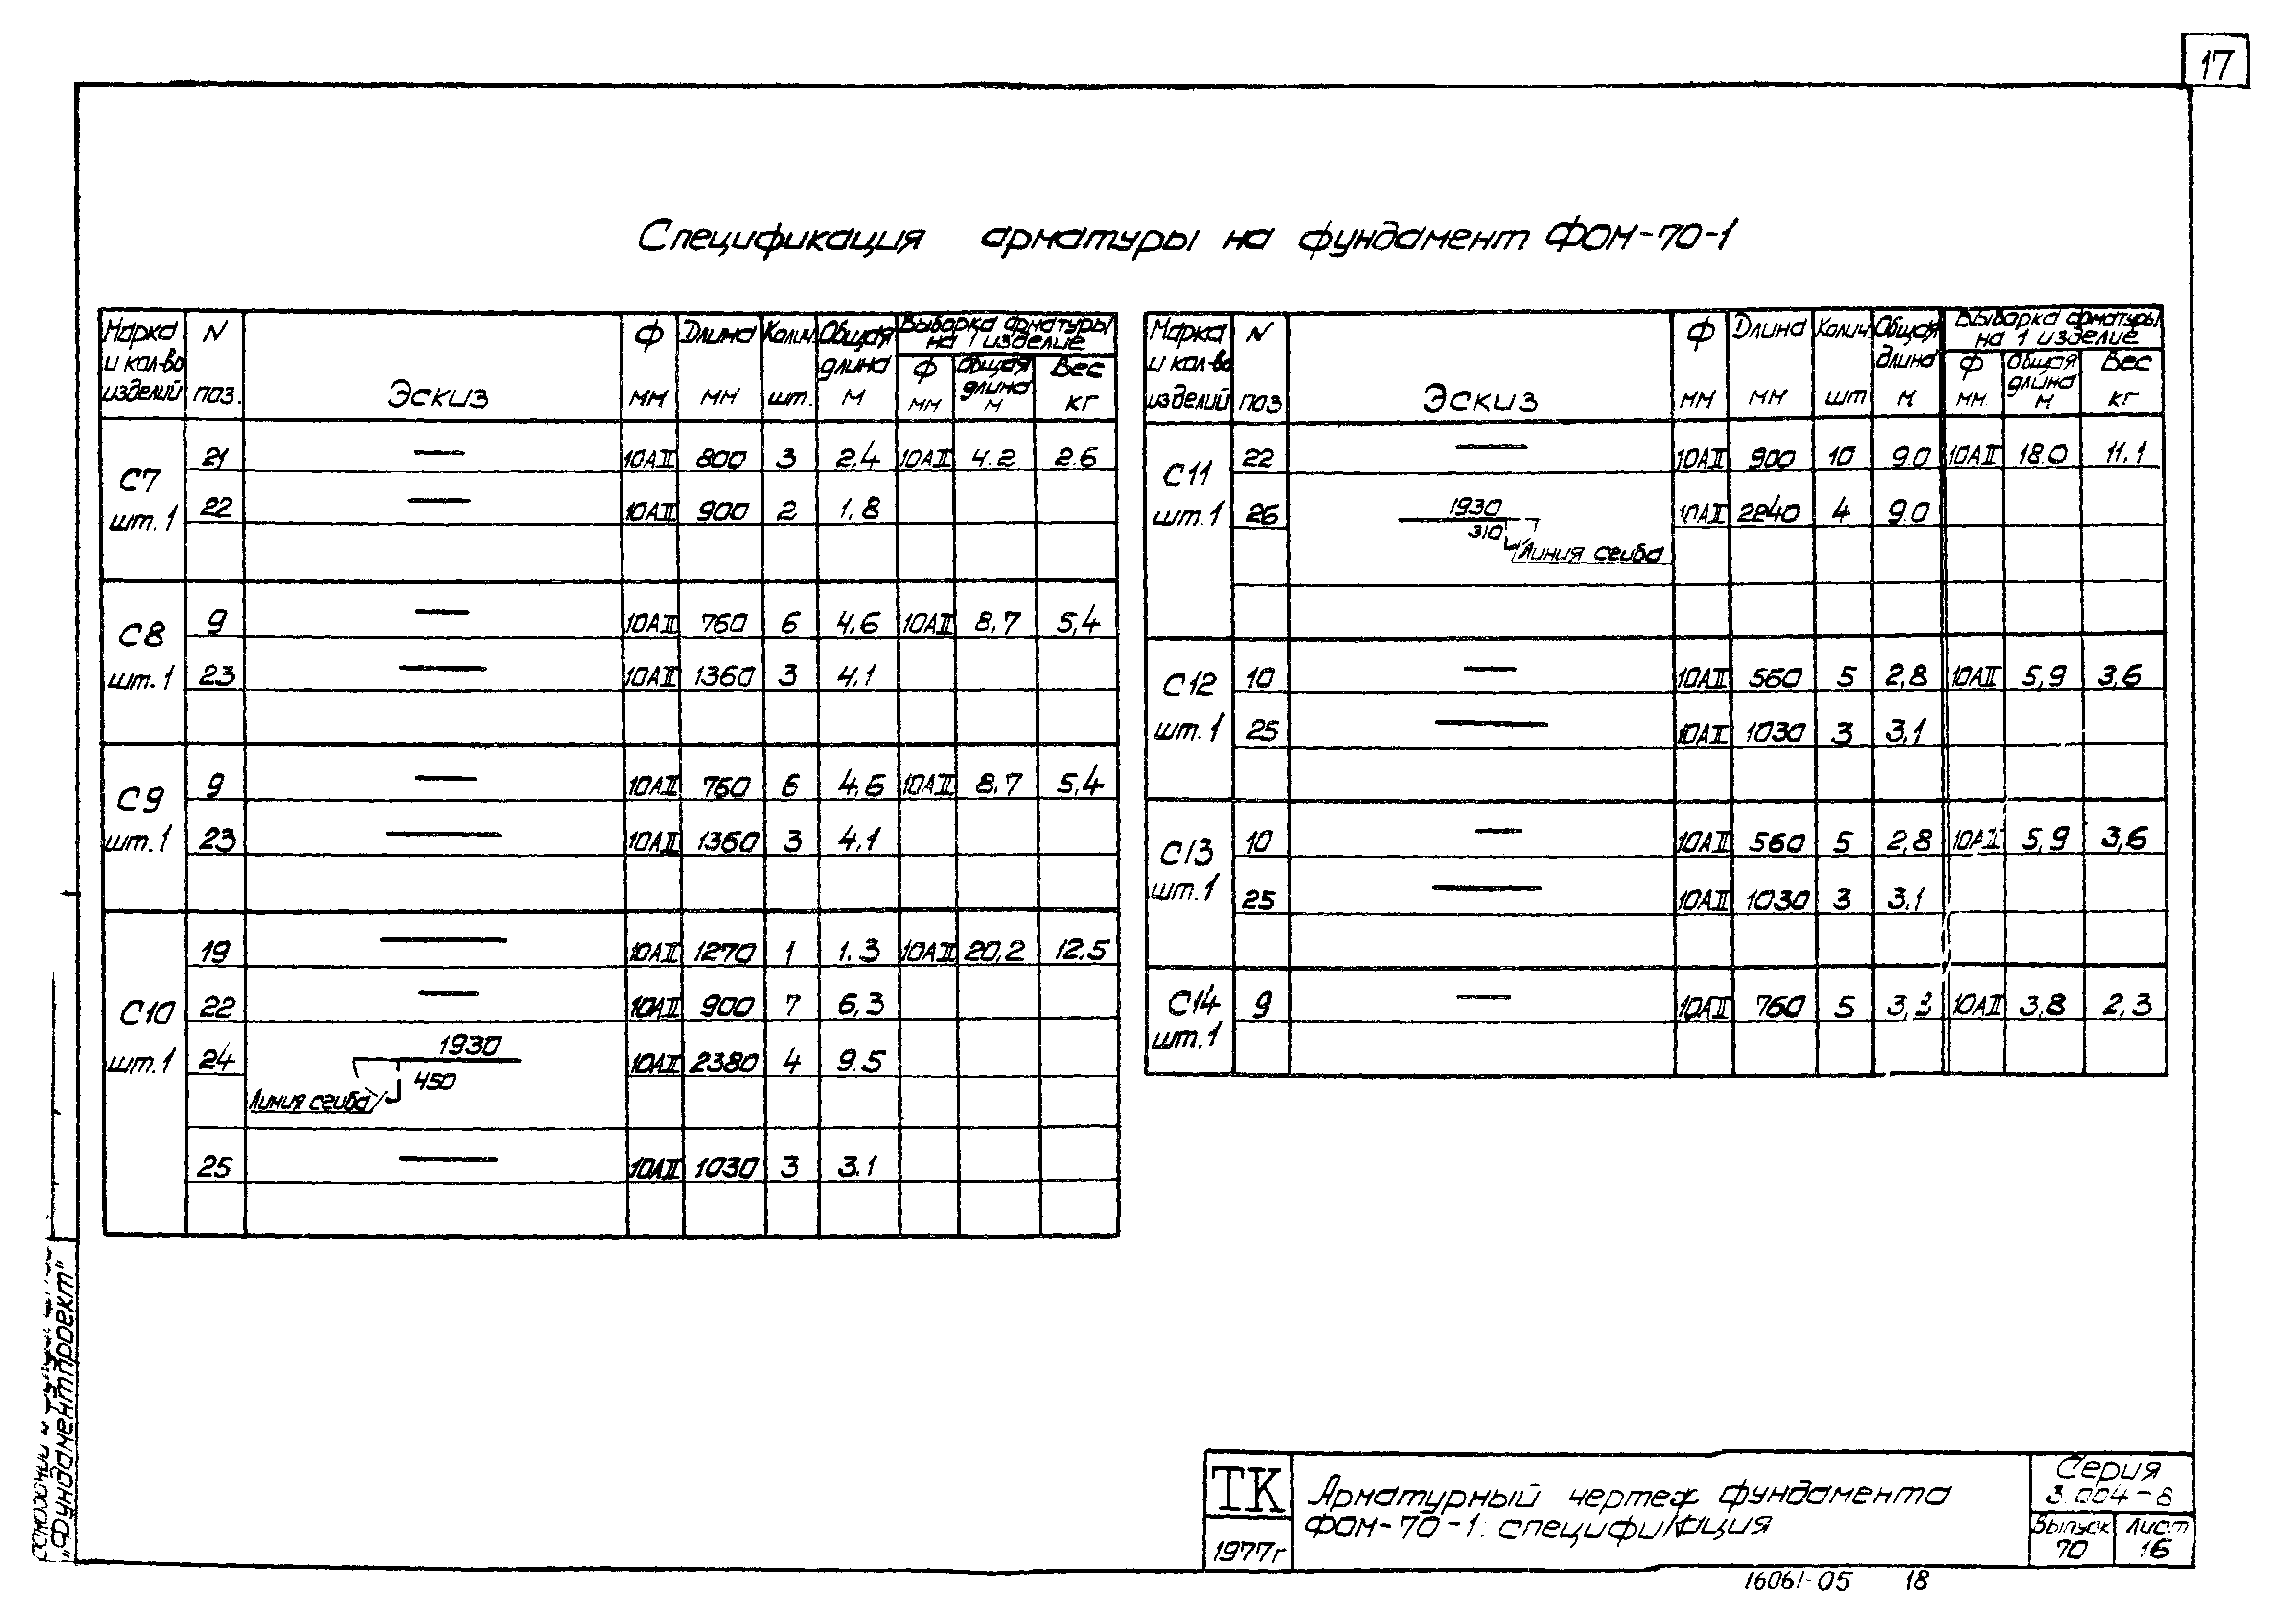 17
Спецификация арматуры на фундамент ФОМ-70-1
Марка и кол-во изделий N поз. Эскиз Ф мм Длина мм Колич. шт. Общая длина м Выборка арматуры на 1 изделие Ф мм Общая длина м Вес кг
С7 шт. 1
21 10АII 800 3 2,4 10АII 4.2 2.6
22 10АII 900 2 1,8
С8 шт. 1
9 10АII 760 6 4,6 10АII 8,7 5,4
23 10АII 1360 3 4,1
С9 шт. 1
9 10АII 760 6 4,6 10АII 8,7 5,4
23 10АII 1360 3 4,1
С10 шт. 1
19 10АII 1270 1 1,3 10АII 20,2 12.5
22 10АII 900 7 6,3
24 1930 450 Линия сгиба 10АII 2380 4 9.5
25 10АII 1030 3 3.1
Марка и кол-во изделий N поз Эскиз Ф мм Длина мм Колич шт Общая длина м Выборка арматуры на 1 изделие Ф мм. Общая длина м Вес кг
С11 шт. 1
22 10АII 900 10 9.0 10АII 18.0 11.1
26 1930 310 Линия сгиба 10АII 2240 4 9.0
С12 шт. 1
10 10АII 560 5 2,8 10АII 5,9 3,6
25 10АII 1030 3 3,1
С13 шт. 1
10 10АII 560 5 2,8 10АII 5,9 3,6
25 10АII 1030 3 3.1
С14 шт. 1
9 10АII 760 5 3,3 10АII 3,8 2,3
"Фундаментпроект"
ТК
1977г
Арматурный чертеж фундамента
ФОМ-70-1. спецификация
Серия
3.004-8
Выпуск 70
Лист 16
16061-05 18